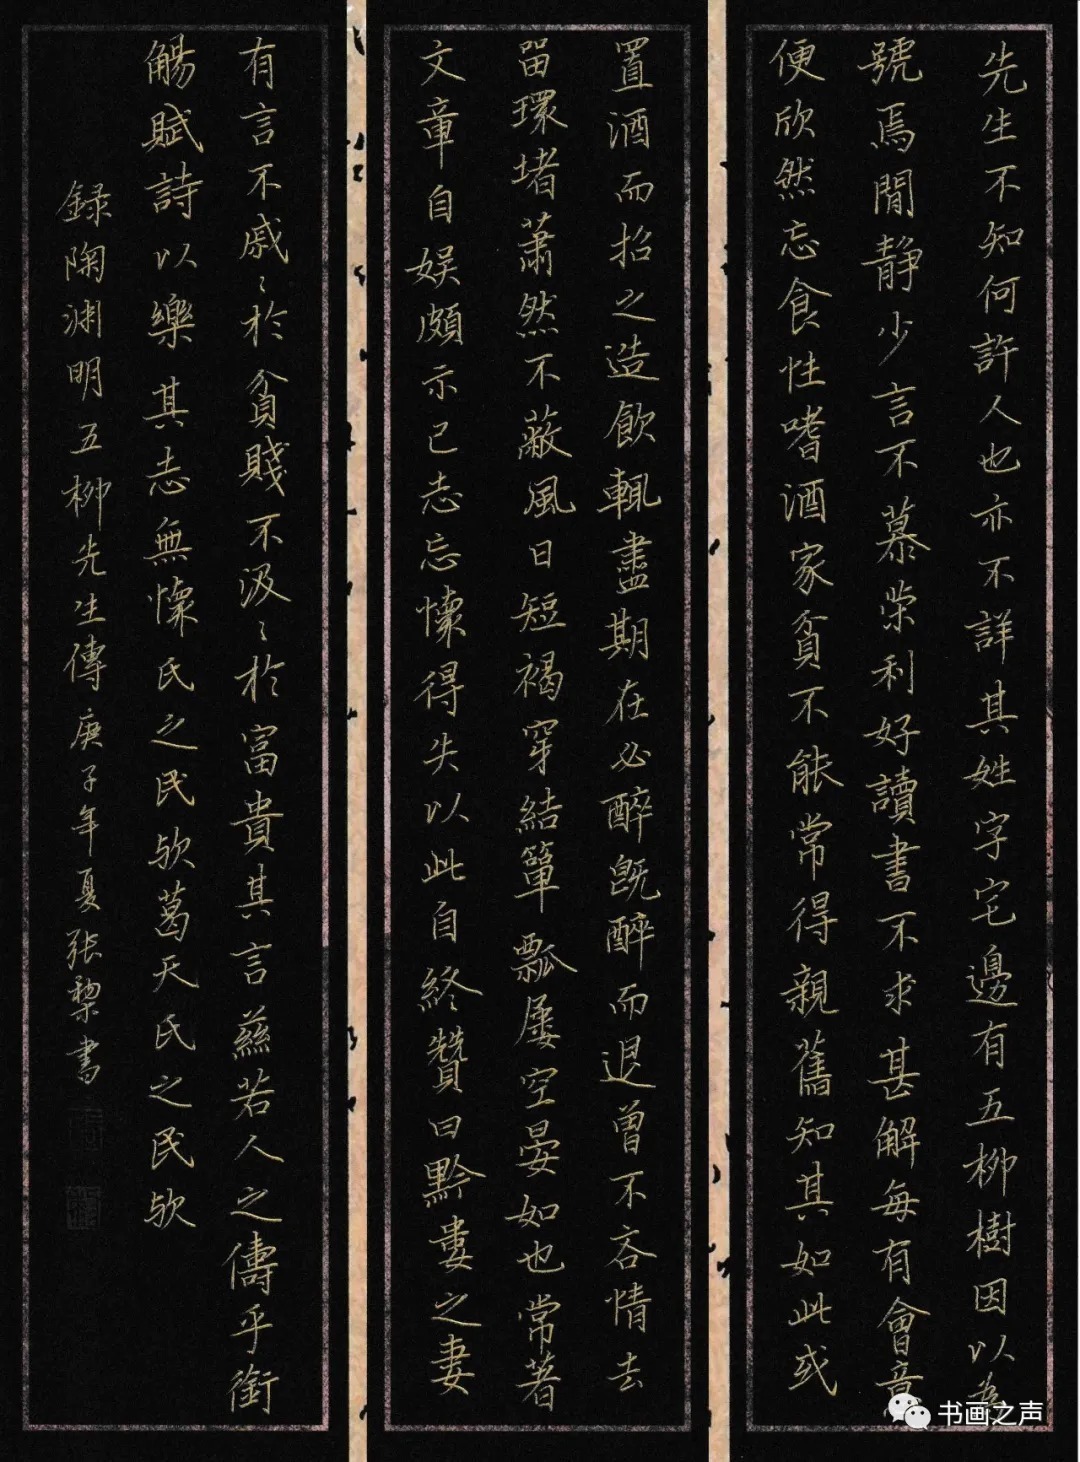 先生不知何許人也亦不詳其姓字宅邊有五柳樹因以為
號焉閒靜少言不慕榮利好讀書不求甚解每有會意
便欣然忘食性嗜酒家貧不能常得親舊知其如此或
置酒而招之造飲輒盡期在必醉既醉而退曾不吝情去
留環堵蕭然不蔽風日短褐穿結簞瓢屢空晏如也常著
文章自娛頗示己志忘懷得失以此自終贊曰黔婁之妻
有言不戚〻於貧賤不汲〻於富貴其言茲若人之儔乎銜
觴賦詩以樂其志無懷氏之民歟葛天氏之民歟
録陶渊明五柳先生傳庚子年夏張黎書
书画之声